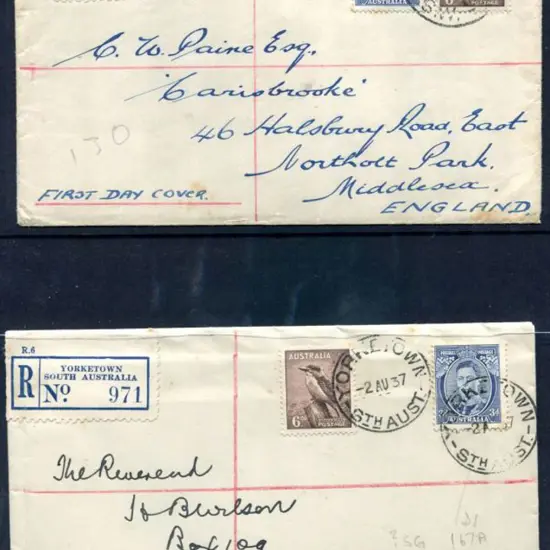 AUSTRALIA
6D
POSTAGE
C. W. Paine Esq.
'Carisbrooke'
46 Halsbury Road, East
Northolt Park.
Middlesex.
ENGLAND.
150
FIRST DAY COVER.
R.6
YORKETOWN
SOUTH AUSTRALIA
R No. 971
AUSTRALIA
6D
POSTAGE
YORKETOWN
-2 AU 37
STH AUST.
POSTAGE
3d
YORKETOWN
-2 A 37
-STH AUST.-
The Reverend
Box 109
?SG 167A